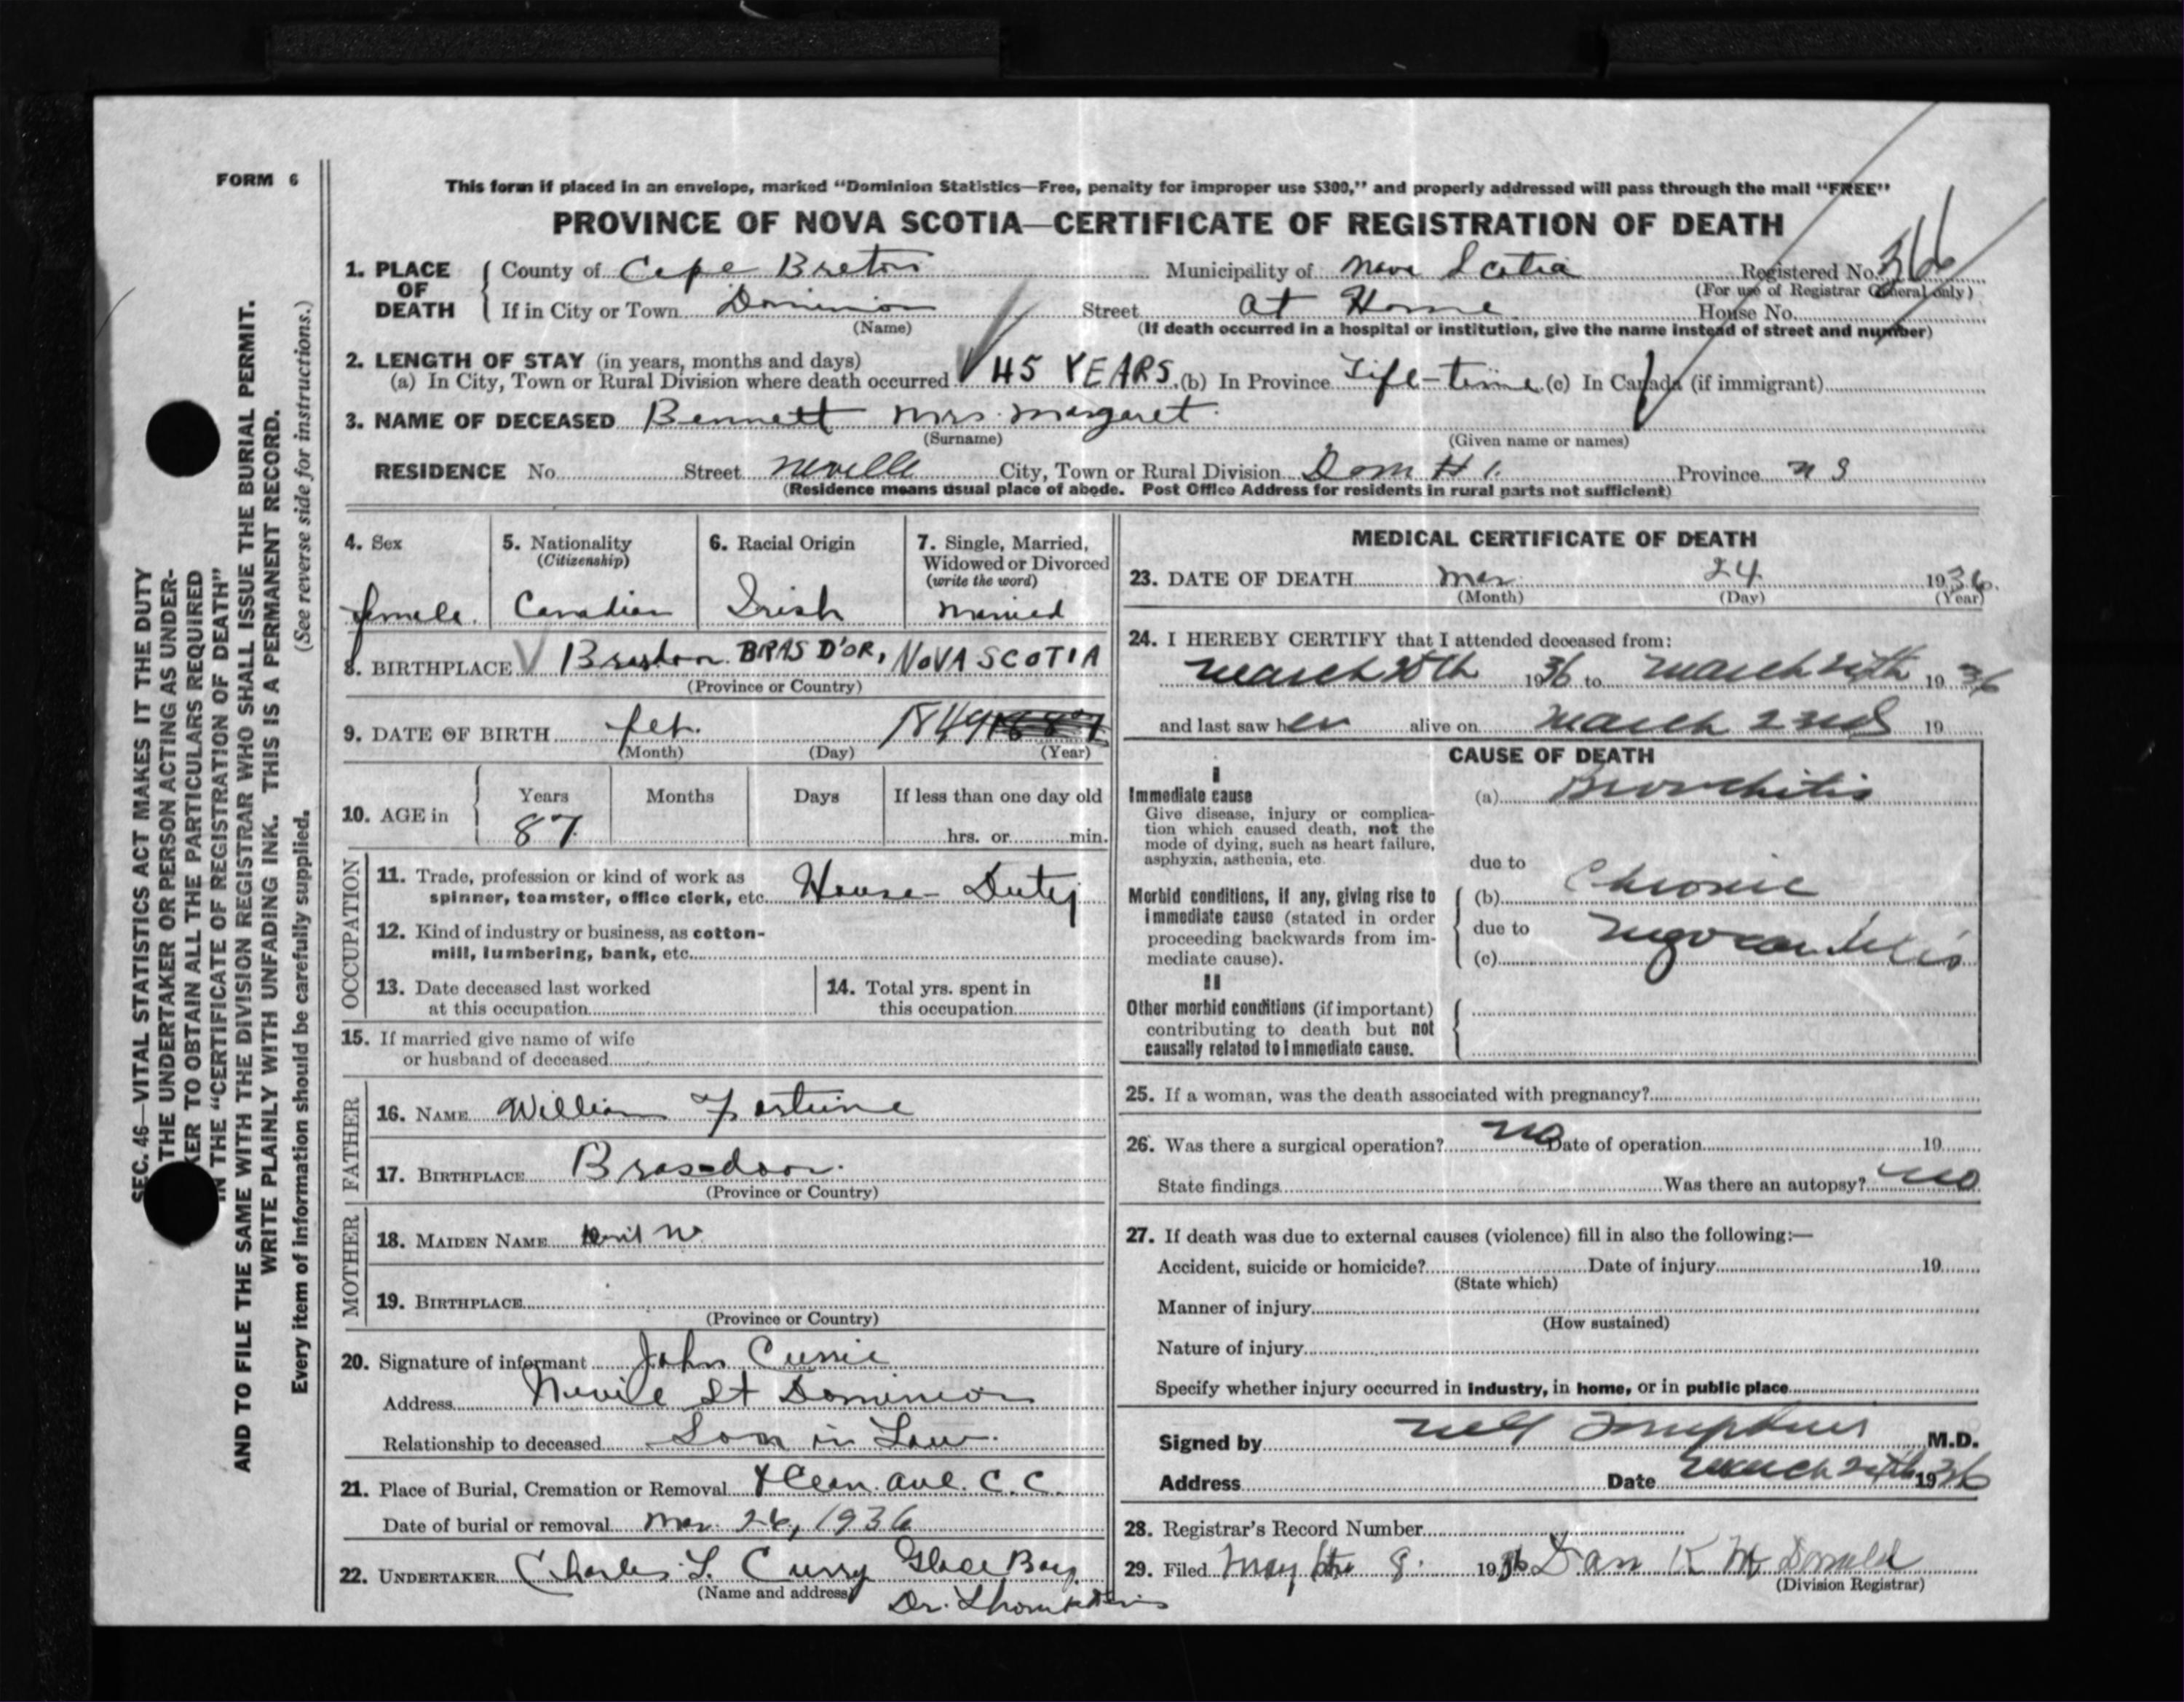 FORM 6
This form if placed in an envelope, marked "Dominion Statistics—Free, penalty for improper use $300," and properly addressed will pass through the mail "FREE"
PROVINCE OF NOVA SCOTIA—CERTIFICATE OF REGISTRATION OF DEATH
1. PLACE OF DEATH
County of Cape Breton Municipality of Nova Scotia Registered No. 366
(For use of Registrar General only)
If in City or Town Dominion Street at Home House No.
(Name) (If death occurred in a hospital or institution, give the name instead of street and number)
2. LENGTH OF STAY (in years, months and days)
(a) In City, Town or Rural Division where death occurred 45 YEARS (b) In Province Life-time (c) In Canada (if immigrant)
3. NAME OF DECEASED Bennett Mrs. Margaret
(Surname) (Given name or names)
RESIDENCE No. Street Neville City, Town or Rural Division Dom # 1. Province N S
(Residence means usual place of abode. Post Office Address for residents in rural parts not sufficient)
4. Sex
female
5. Nationality
(Citizenship)
Canadian
6. Racial Origin
Irish
7. Single, Married,
Widowed or Divorced
(write the word)
Married
8. BIRTHPLACE BRAS D'OR, NOVA SCOTIA
(Province or Country)
9. DATE OF BIRTH Feb. 1849
(Month) (Day) (Year)
10. AGE in
Years Months Days If less than one day old
87 hrs. or min.
OCCUPATION
11. Trade, profession or kind of work as
spinner, teamster, office clerk, etc. House Duty
12. Kind of industry or business, as cotton-
mill, lumbering, bank, etc.
13. Date deceased last worked
at this occupation
14. Total yrs. spent in
this occupation
15. If married give name of wife
or husband of deceased
FATHER
16. NAME William Fortune
17. BIRTHPLACE Brasdoor.
(Province or Country)
MOTHER
18. MAIDEN NAME
19. BIRTHPLACE
(Province or Country)
20. Signature of informant John Currie
Address Nevile St Dominion
Relationship to deceased Son in Law.
21. Place of Burial, Cremation or Removal ave. C. C.
Date of burial or removal Mar. 26, 1936
22. UNDERTAKER Charles L. Curry Glace Bay
(Name and address)
MEDICAL CERTIFICATE OF DEATH
23. DATE OF DEATH Mar. 24 1936.
(Month) (Day) (Year)
24. I HEREBY CERTIFY that I attended deceased from:
March 1936 to March 24th 1936
and last saw her alive on March 22nd 19
CAUSE OF DEATH
I
Immediate cause
Give disease, injury or complica-
tion which caused death, not the
mode of dying, such as heart failure,
asphyxia, asthenia, etc.
(a) Bronchitis
due to
Morbid conditions, if any, giving rise to
immediate cause (stated in order
proceeding backwards from im-
mediate cause).
(b) Chronic
due to
(c) Myocarditis
II
Other morbid conditions (if important)
contributing to death but not
causally related to immediate cause.
25. If a woman, was the death associated with pregnancy?
26. Was there a surgical operation? no Date of operation 19
State findings Was there an autopsy? no
27. If death was due to external causes (violence) fill in also the following:—
Accident, suicide or homicide? Date of injury 19
(State which)
Manner of injury
(How sustained)
Nature of injury
Specify whether injury occurred in industry, in home, or in public place
Signed by Tompkins M.D.
Address Date March 24th 1936
28. Registrar's Record Number
29. Filed May 1936 Dan K McDonald
(Division Registrar)
SEC. 46—VITAL STATISTICS ACT MAKES IT THE DUTY
THE UNDERTAKER OR PERSON ACTING AS UNDER-
KER TO OBTAIN ALL THE PARTICULARS REQUIRED
IN THE "CERTIFICATE OF REGISTRATION OF DEATH"
AND TO FILE THE SAME WITH THE DIVISION REGISTRAR WHO SHALL ISSUE THE BURIAL PERMIT.
WRITE PLAINLY WITH UNFADING INK. THIS IS A PERMANENT RECORD.
Every item of information should be carefully supplied. (See reverse side for instructions.)